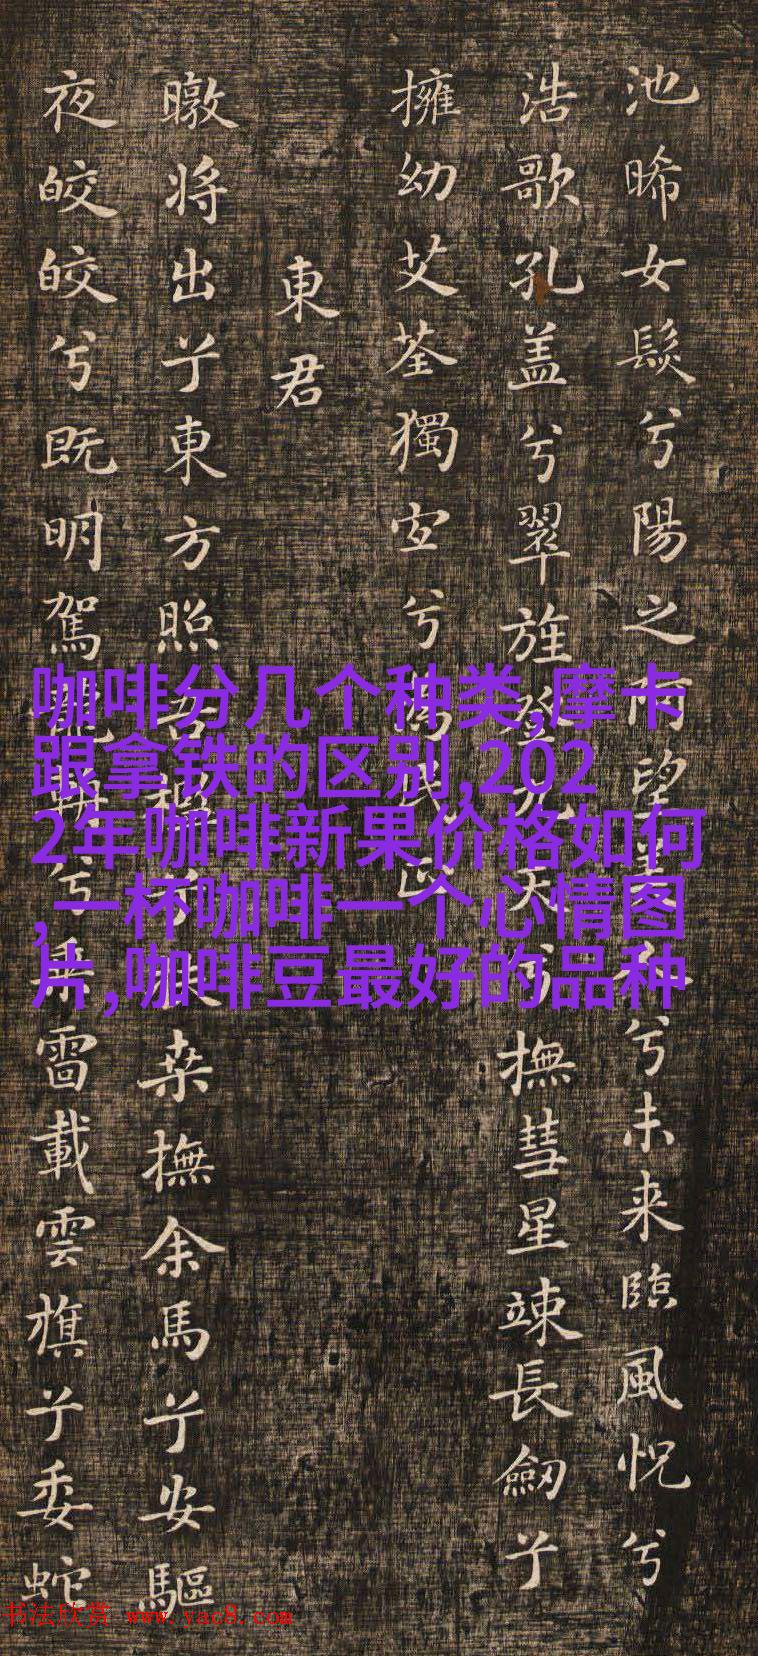 池晞女髮兮陽之阿望美人兮未来臨風怳兮
浩歌孔盖兮翠旌登九天兮撫彗星竦長劒兮
擁幼艾荃獨宜兮為民正
東君
暾将出兮東方照吾檻兮扶桒撫余馬兮安驅
夜皎皎兮既明駕龍輈兮乗雷載雲旗兮委蛇
咖啡分几个种类,摩卡
跟拿铁的区别,202
2年咖啡新果价格如何
,一杯咖啡一个心情图
片,咖啡豆最好的品种
书法欣赏 www.yac8.com